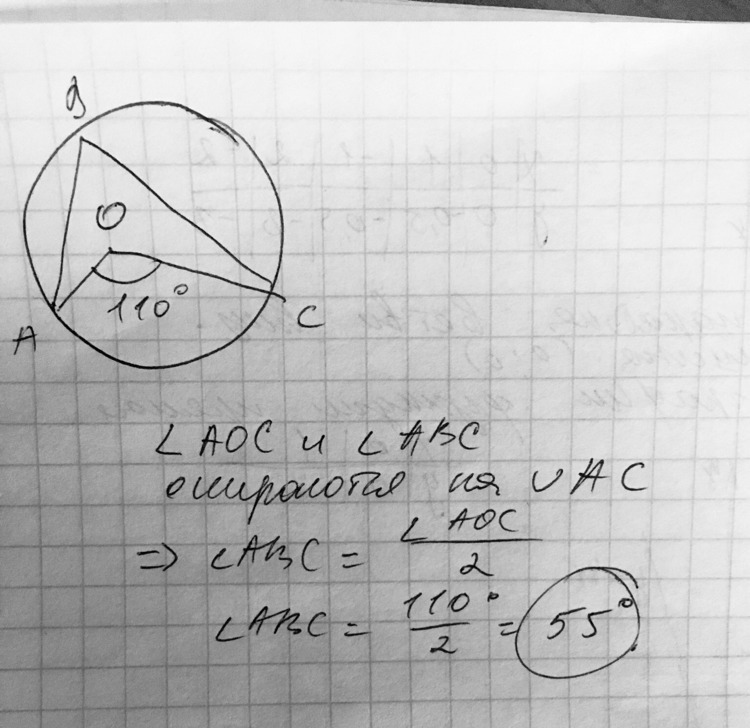 B
O
110°
A
C
∠AOC и ∠ABC
опираются на ∪AC
=> ∠ABC = ∠AOC / 2
∠ABC = 110° / 2 = 55°